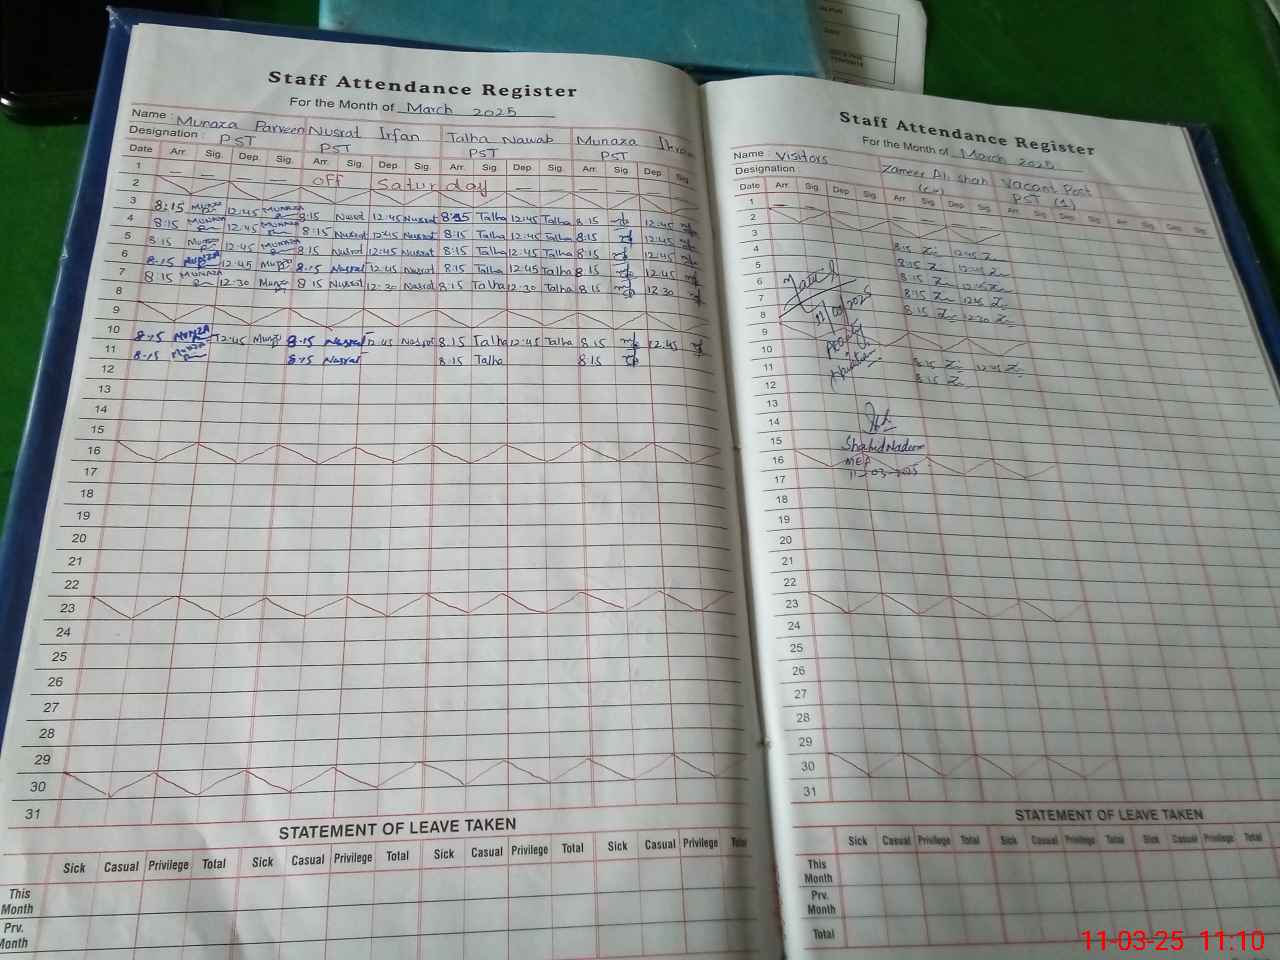 Staff Attendance Register
For the Month of March 2025
Name : Munaza Parveen Nusrat Irfan Talha Nawab Munaza
Designation : PST PST PST PST
Date Arr. Sig. Dep. Sig. Arr. Sig. Dep. Sig. Arr. Sig. Dep. Sig. Arr. Sig. Dep. Sig.
1 off Saturday
2
3 8:15 Munaza 12:45 Munaza 8:15 Nusrat 12:45 Nusrat 8:15 Talha 12:45 Talha 8:15 12:45
4 8:15 Munaza 12:45 Munaza 8:15 Nusrat 12:45 Nusrat 8:15 Talha 12:45 Talha 8:15 12:45
5 8:15 Munaza 12:45 Munaza 8:15 Nusrat 12:45 Nusrat 8:15 Talha 12:45 Talha 8:15 12:45
6 8:15 Munaza 12:45 Munaza 8:15 Nusrat 12:45 Nusrat 8:15 Talha 12:45 Talha 8:15 12:45
7 8:15 Munaza 12:30 Munaza 8:15 Nusrat 12:30 Nusrat 8:15 Talha 12:30 Talha 8:15 12:30
8
9
10 8:15 Munaza 12:45 Munaza 8:15 Nusrat 12:45 Nusrat 8:15 Talha 12:45 Talha 8:15 12:45
11 8:15 Munaza 8:15 Nusrat 8:15 Talha 8:15
12
13
14
15
16
17
18
19
20
21
22
23
24
25
26
27
28
29
30
31
STATEMENT OF LEAVE TAKEN
Sick Casual Privilege Total Sick Casual Privilege Total Sick Casual Privilege Total Sick Casual Privilege Total
This Month
Prv. Month
Staff Attendance Register
For the Month of March 2025
Name : Visitors Zameer Ali Shah Vacant Post
Designation PST (1)
Date Arr. Sig. Dep. Sig. Arr. Sig. Dep. Sig. Arr. Sig. Dep. Sig. Arr. Sig. Dep. Sig.
1
2
3 8:15 12:45
4 8:15 12:45
5 8:15 12:45
6 8:15 12:45
7 8:15 12:30
8
9
10 8:15 12:45
11 8:15
12
13
14
15 Shahid Nadeem
16 MEA
17 11-03-2025
18
19
20
21
22
23
24
25
26
27
28
29
30
31
STATEMENT OF LEAVE TAKEN
Sick Casual Privilege Total Sick Casual Privilege Total Sick Casual Privilege Total
This Month
Prv. Month
Total
11-03-25 11:10